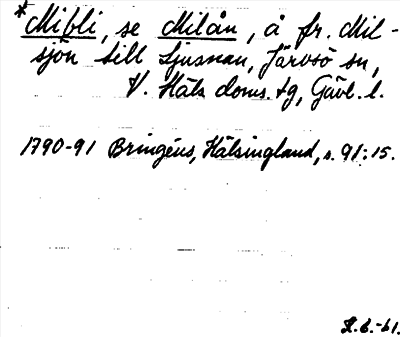 *Mibli, se Milån, å fr. Mil-
sjön till Ljusnan, Järvsö sn,
V. Häls doms. tg, Gävl. l.
1790-91 Bringéus, Hälsingland, s. 91:15.